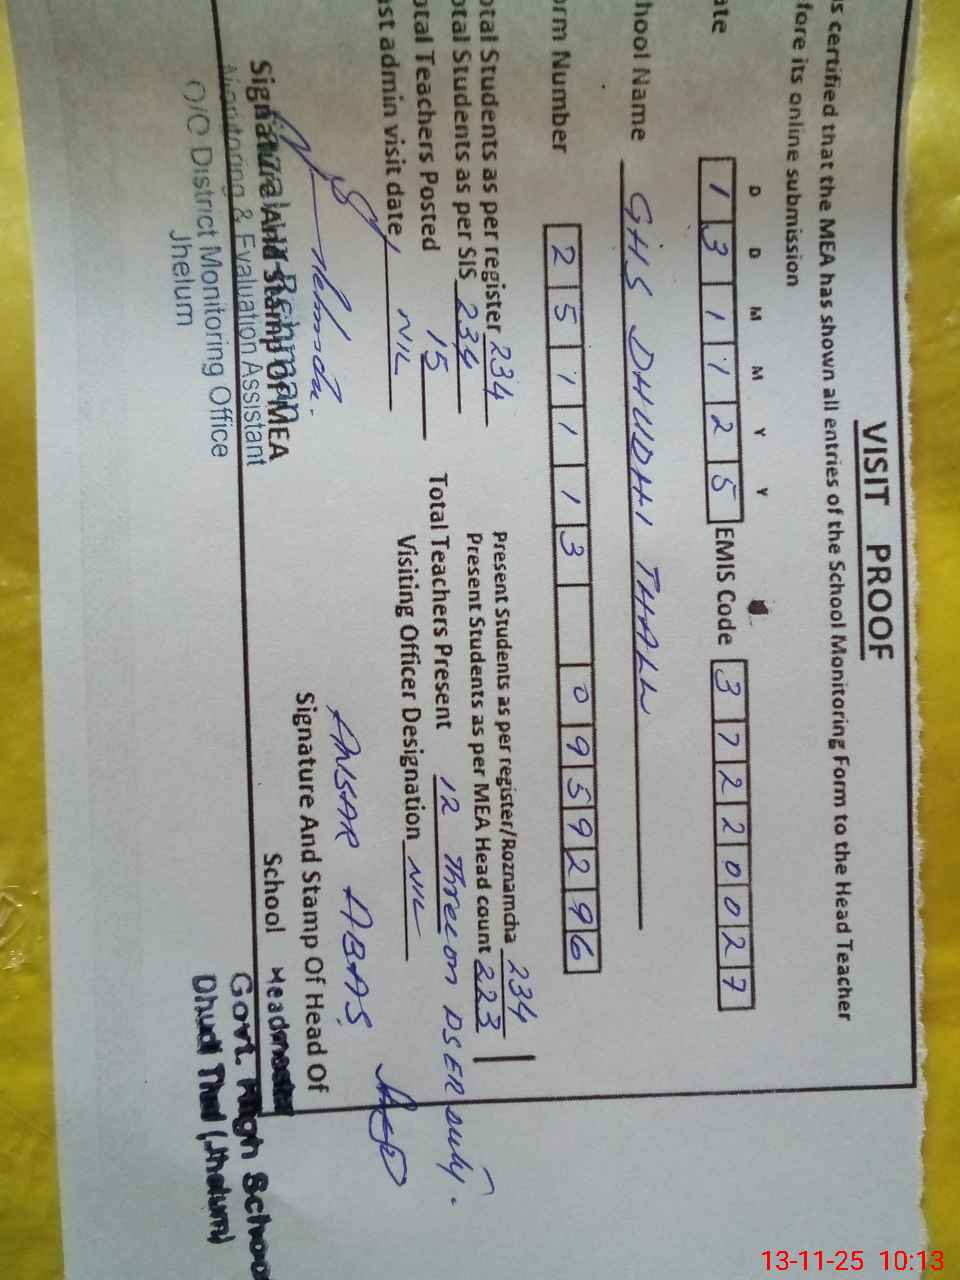 VISIT PROOF
is certified that the MEA has shown all entries of the School Monitoring Form to the Head Teacher
fore its online submission
D D M M Y Y
ate 1 3 1 1 2 5 EMIS Code 3 7 2 2 0 0 2 7
hool Name GHS DHUDHI THALL
orm Number 2 5 1 1 1 3 0 9 5 9 2 9 6
otal Students as per register 234 Present Students as per register/Roznamcha 234
otal Students as per SIS 234 Present Students as per MEA Head count 223
otal Teachers Posted 15 Total Teachers Present 12 Three on DSER duty.
ast admin visit date NIL Visiting Officer Designation NIL
ANSAR ABAS
Signature And Stamp Of MEA Signature And Stamp Of Head Of
School
Rehman
Monitoring & Evaluation Assistant
O/O District Monitoring Office
Jhelum
Headmaster
Govt. High School
Dhudi Thal (Jhelum)
13-11-25 10:13